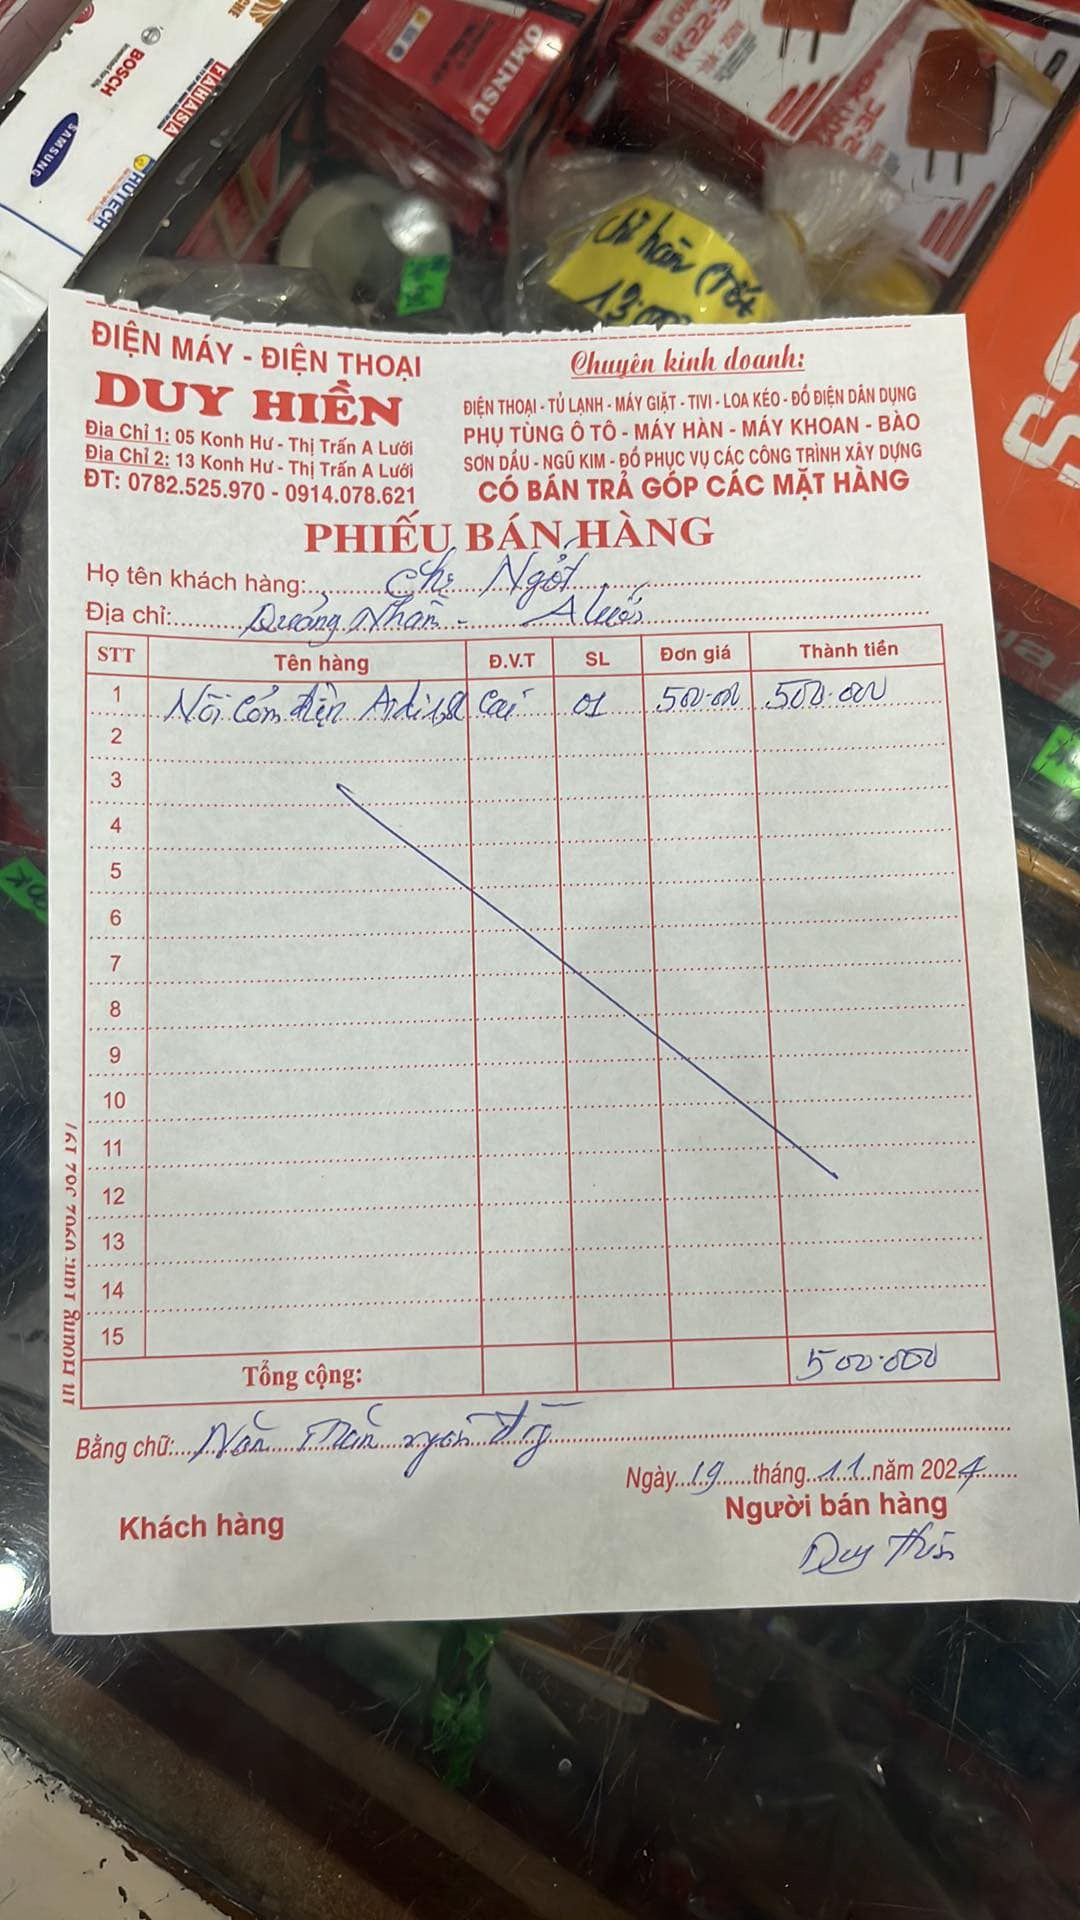 BOSCH
FAHASA
SAMSUNG
RUTECH
OMINSU
Chì hàn (Tốt
13.000
ĐIỆN MÁY - ĐIỆN THOẠI
DUY HIỀN
Địa Chỉ 1: 05 Konh Hư - Thị Trấn A Lưới
Địa Chỉ 2: 13 Konh Hư - Thị Trấn A Lưới
ĐT: 0782.525.970 - 0914.078.621
Chuyên kinh doanh:
ĐIỆN THOẠI - TỦ LẠNH - MÁY GIẶT - TIVI - LOA KÉO - ĐỒ ĐIỆN DÂN DỤNG
PHỤ TÙNG Ô TÔ - MÁY HÀN - MÁY KHOAN - BÀO
SƠN DẦU - NGŨ KIM - ĐỒ PHỤC VỤ CÁC CÔNG TRÌNH XÂY DỰNG
CÓ BÁN TRẢ GÓP CÁC MẶT HÀNG
PHIẾU BÁN HÀNG
Họ tên khách hàng: Chị Ngởt
Địa chỉ: Quảng Nhâm - A Lưới
STT Tên hàng Đ.V.T SL Đơn giá Thành tiền
1 Nồi cơm điện Cái 01 500.000 500.000
2
3
4
5
6
7
8
9
10
11
12
13
14
15
Tổng cộng: 500.000
Bằng chữ: Năm trăm ngàn đồng
Ngày 19 tháng 11 năm 2024
Khách hàng
Người bán hàng
Duy
In Hoàng Tuấn: 0962 582 197